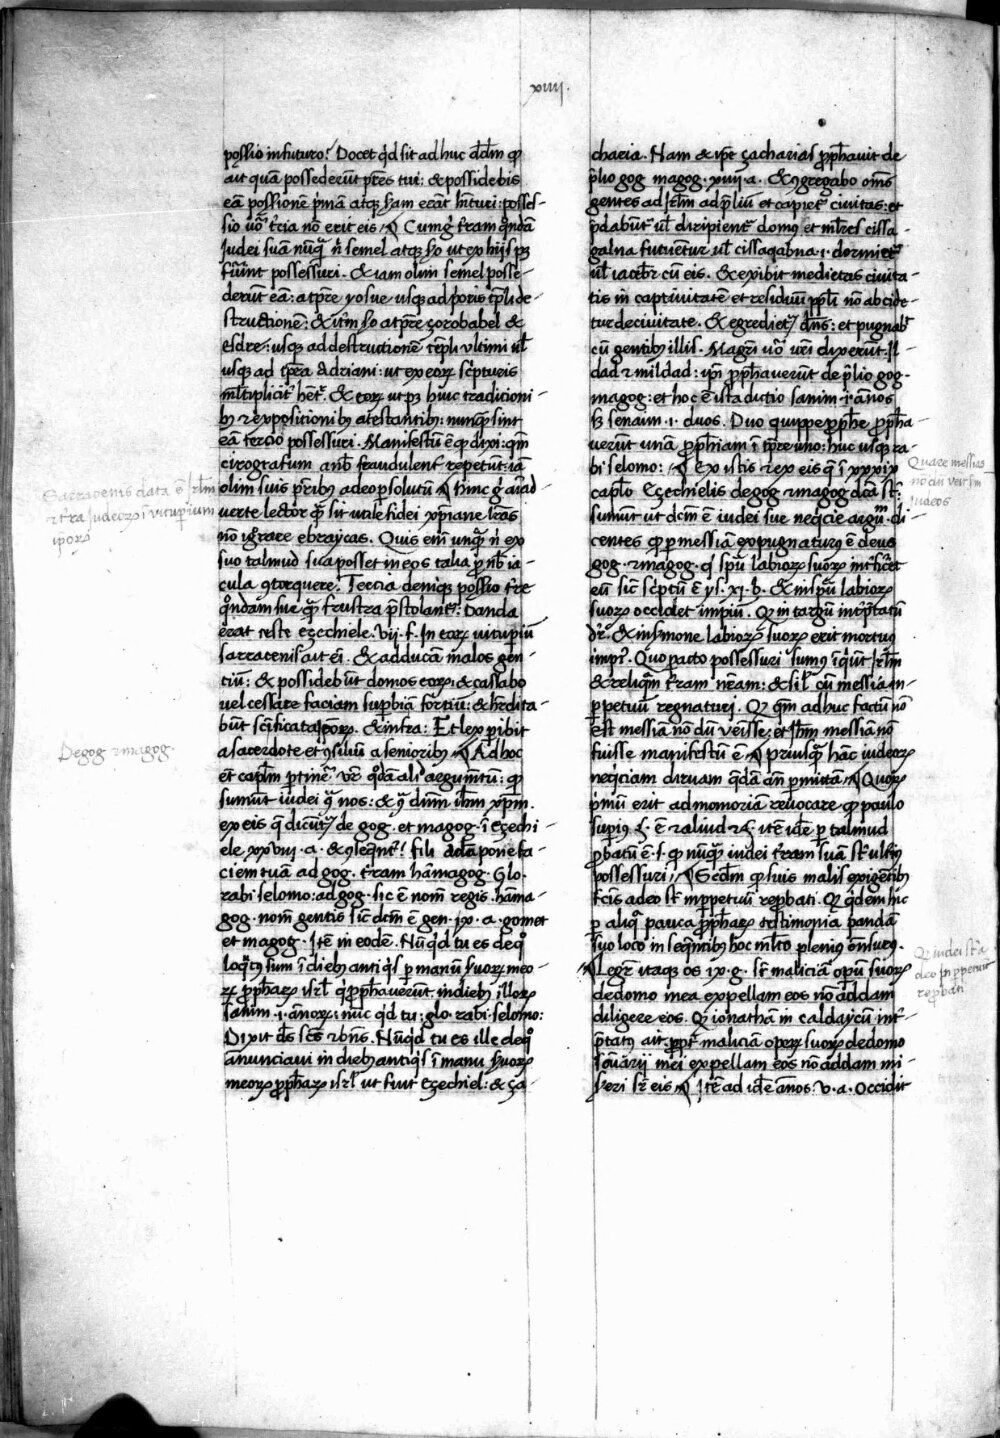 xiiii.
possio in futuro? Docet qd sit ad huc dd̄m qͥ
ait quā possederūt pr̄es tui: & possidebis
eā possionē pͥmā atqꝫ scd̄am erāt hīturi: posses-
sio uō t̄cia nō erit eis ¶ Cum gͥ tr̄am qōndā
Judei suā nūqͣ n̄ semel atqꝫ
fūūnt possessuri. & iam olim semel posse-
derūt eā: a tp̄re yosue usqꝫ ad pͥoris tp̄li de-
structionē: & itm̄ a tp̄re zorobabel &
esdre: usqꝫ ad destructionē tēpli ultimi ul̄
usqꝫ ad tp̄ra Adriani: ut ex eoꝝ sc̄pturis
ml̄tiplicit̄ het̄. & eoꝝ utpꝫ huic traditioni
bꝫ & expositionibꝫ atestantibꝫ: nunqͣ sint
eā tercio possessuri. Manifestū ē qͥ dixi: qm̄
cirografum anb̄ fraudulent̄ repetūt: iā
olim suis pr̄ibus a deo psolutū ¶ hinc gͥ aīad
uerte lector qͣ sit utile fidei xp̄iane lr̄as
nō igͥrare ebraycas. Quis eīn unqͣ n̄ ex
suo talmud sua posset in eos talia pro nb̄ ia-
cula ꝯtorquere. Tercia deniqꝫ possio tr̄e
qōndam sue qͣ frustra pͥstolant̄: danda
erat teste ezechiele. vij. f. In eoꝝ uitupiū
sarracenis ait eī. & adducā malos gen-
tiū: & possidebūt domos eoꝝ: & cassabo
uel cessare faciam supbiā fortiū: & hr̄dita-
būt sc̄ificata ipoꝝ. & infra: Et lex pibit
a sacerdote et ꝯsiliū a senioribꝫ ¶ Ad hoc
et capl̄m ptinet̄ qōdā ali aegum̄tū: qͥ
sumūt iudei qͣ nos: & qͣ dn̄m ihm̄ xp̄m.
ex eis q̄ dicūt̄ de gog. et magog. ī Ezechi
ele, xxviij. a. & ꝯseqnt̄! fili adā pone fa-
ciem tuā ad gog. tr̄am hāmagog. Glo.
rabi selomo: ad gog. sic ē nom̄ regis. hāma-
gog. nom̄ gentis sic dc̄m ē gen. ix. a. gomer
et magog. Itē in eodē. Nūqd tu es de qͦ
loqͥtus sum ī diebꝫ antiqͥs p manū suoꝝ meo-
ꝝ ppħaꝝ isrl̄ qͥ ppħauerūt in diebꝫ illoꝝ
sanim. i. ānoꝝ: nūc qd tu: glo. rabi selomo:
Dixit ds̄ sc̄s & bn̄s. Nūqd tu es ille de qͦ
annunciaui in diebꝫ antiqͥs ī manu suoꝝ
meoꝝ ppħaꝝ isrl̄ ut fuit Ezechiel: & za-
charia. Nam & ip̄e zacharias ppħauit de
pͥlio gog magog. xiiij. a. & ꝯgregabo om̄s
gentes ad Jrl̄m ad pͥliū et capiet̄ ciuitas: et
pͥdabūt̄ ul̄ diripient̄ domus et ml̄res cissa
galna futuent̄ ul̄ cissaqabna. i. dormiet̄
ul̄ iaceb̄r cū eis. & exibit medietas ciuita-
tis in captiuitatē et residuū ppl̄i nō abcide-
tur de ciuitate. & egrediet̄ dn̄s: et pugnab̄t
cū gentibꝫ illis. Magr̄i uō ur̄i dixerūt. Il-
dad & mildad: ip̄i ppħauerūt de pͥlio gog.
magog: et hoc ē ista dutio sanim. i. ānos
ꝫ senaim. i. duos. Duo quippe ppħe ppħa-
uerūt unā ppħiam ī tp̄re uno: huc usqꝫ ra-
bi selomo: ¶ Ex istis & ex eis q̄ ī xxxix
capl̄o Ezechielis de gog & magog dc̄a st̄:
sumūt ut dc̄m ē iudei sue neqͥcie argūm di-
centes qͥ p messiā expugnaturꝰ ē deus
gog. & magog. qͥ spū labioꝝ suoꝝ int̄ficiet
eū sic sc̄ptū ē ys. xi. b. & in spū labioꝝ
suoꝝ occidet impiū. Qͥ in targū int̄pͥtatū
dr̄. & in sermone labioꝝ suoꝝ erit mortuꝰ
impiꝰ. Quo pacto possessuri sumꝰ īqͥūt Jrl̄m
& reliqͣm tr̄am nr̄am: & sil̄ cū messia in-
ppetuū regnaturi. Qͥ qm̄ adhuc factū nō
est messiā nō dū uenisse: et ihm̄ messiā nō
fuisse manifestū ē ¶ Priusqͣ hāc iudeoꝝ
neqͥciam diruam qēdā an̄ pmittā ¶ Quoꝝ
pͥmū erit ad momoriā reuocare qͥ paulo
supiꝰ & ē & aliud & itē idē p talmud
pbatū ē. s. qͥ nūqͣ iudei tr̄am suā st̄ ulteriꝰ
possessuri ¶ Scd̄m qͥ suis malis exigētibꝫ
fc̄is a deo st̄ in ppetuū repbati. Qͥ qͥdem hic
p aliqͣ pauca ppħaꝝ testimonia pandā
suo loco in seqntibꝫ hoc ml̄to plenius ēnsurus.
¶ Legr̄ itaqꝫ os ix. g. st̄ maliciā opūm suoꝝ
de domo mea expellam eos nō addam
diligere eos. Qͥ ionathā in caldaycū int̄-
pͥtatus ait: ppt̄ maliciā opeꝝ suoꝝ de domo
sc̄uarij mei expellam eos nō addam mi-
seri sr̄ eis ¶ Itē ad idē amos. v. a. Occidit
Sarracenis data ē Jrl̄m
& tr̄ra Judeoꝝ ī uitupium
ipoꝝ
De gog & magog.
Quare messias
nō dū uēit scd̄m
iudeos
Qͥ iudei st̄ a
deo in ppetuū
repbati